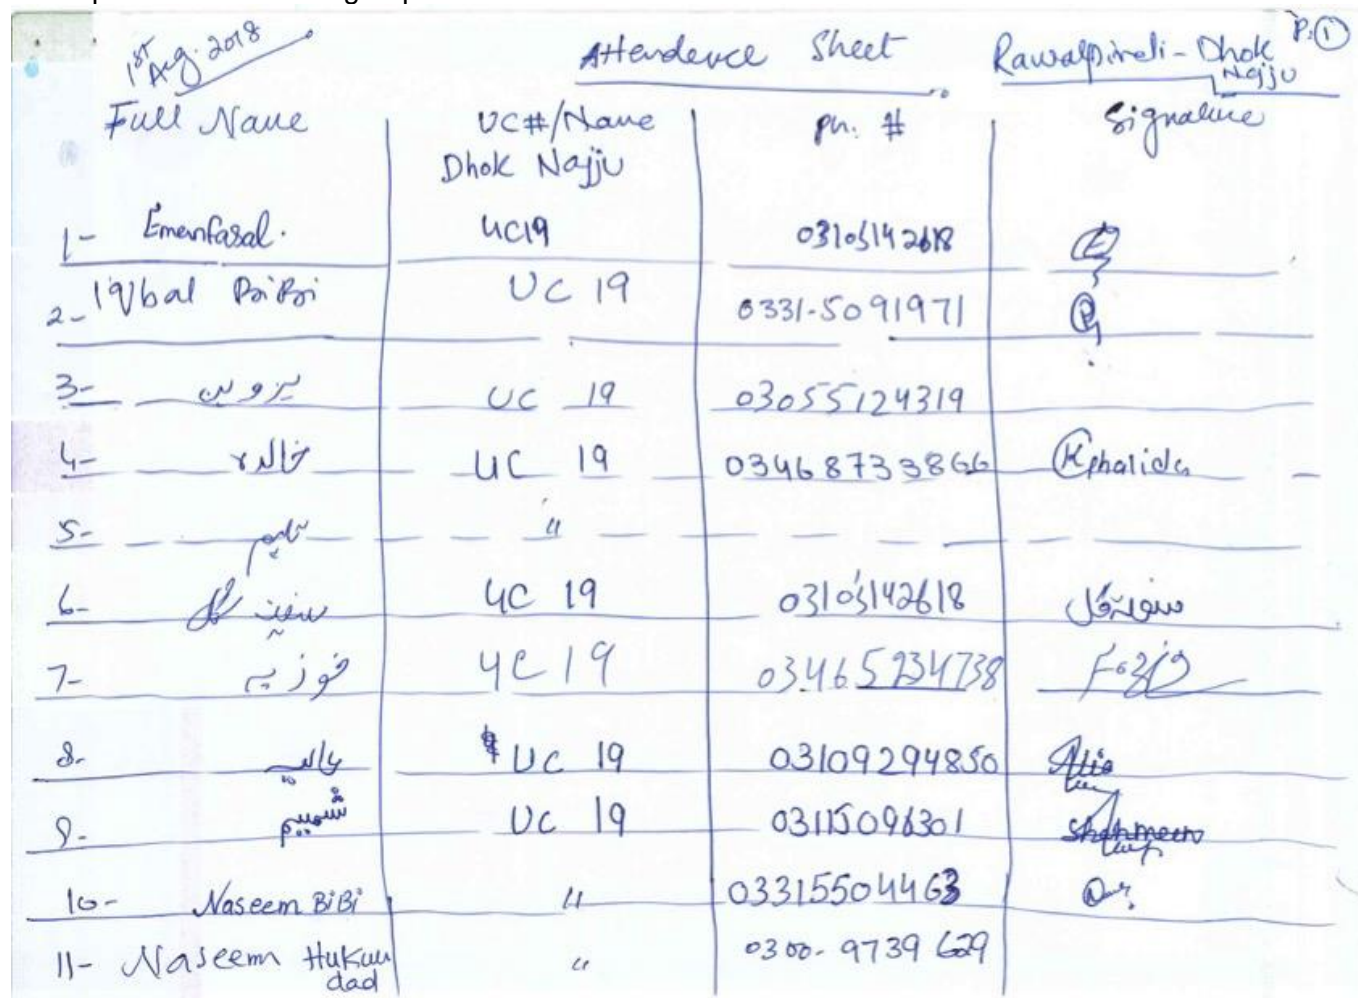 1st Aug. 2018 Attendence Sheet Rawalpindi - Dhok Najju P.①
Full Name UC#/Name Dhok Najju ph. # Signature
1- Emanfasal. UC19 03105142618
2- Iqbal BiBi UC 19 0331-5091971
3- پروین UC 19 03055124319
4- خالدہ UC 19 03468733866 Khalida
5- "
6- گل UC 19 03105142618
7- فوزیہ UC 19 03465234738 Fozia
8- عالیہ UC 19 03109294850 Alia
9- شمیم UC 19 03115096301 Shahmeem
10- Naseem BiBi " 03315504463
11- Naseem Hukum dad " 0300-9739629